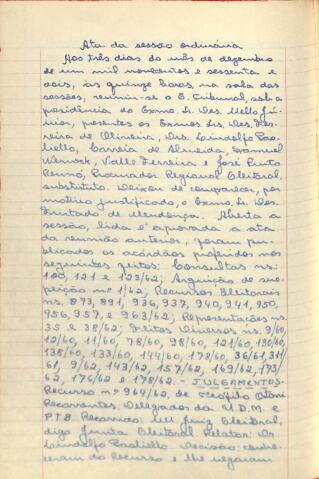 Ata da sessão ordinária
Aos três dias do mês de dezembro
de um mil novecentos e sessenta e
dois, às quinze horas, na sala das
sessões, reuniu-se o E. Tribunal, sob a
presidência do Exmo. Sr. Des. Mello Jú-
nior, presentes os Exmos. Srs. Des. Fer-
reira de Oliveira, Drs. Lindolfo Pao-
liello, Correia de Almeida,
Valle Ferreira e José Pinto
Renó, Procurador Regional Eleitoral,
substituto. Deixou de comparecer, por
motivo justificado, o Exmo. Sr. Des.
Furtado de Mendonça. Aberta a
sessão, lida e aprovada a ata
da reunião anterior, foram pu-
blicados os acórdãos proferidos nos
seguintes feitos: Consultas ns.
100, 121 e 123/62; Arguição de sus-
peição nº 1/62; Recursos Eleitorais
ns. 873, 891, 936, 937, 940, 941, 950,
956, 957, e 963/62; Representações ns.
35 e 38/62; Feitos Diversos ns. 9/60,
12/60, 11/60, 78/60, 98/60, 121/60, 130/60,
138/60, 133/60, 144/60, 178/60, 36/61, 311/
61, 9/62, 143/62, 157/62, 169/62, 173/
62, 176/62 e 178/62. - JULGAMENTOS.
Recurso nº 964/62, de Teófilo Otoni
Recorrentes: Delegados da U.D.N. e
P.T.B. Recorrido: MM. Juiz Eleitoral,
digo Junta Eleitoral Relator: Dr.
Lindolfo Paoliello. Decisão: conhe-
ceram do recurso e lhe negaram